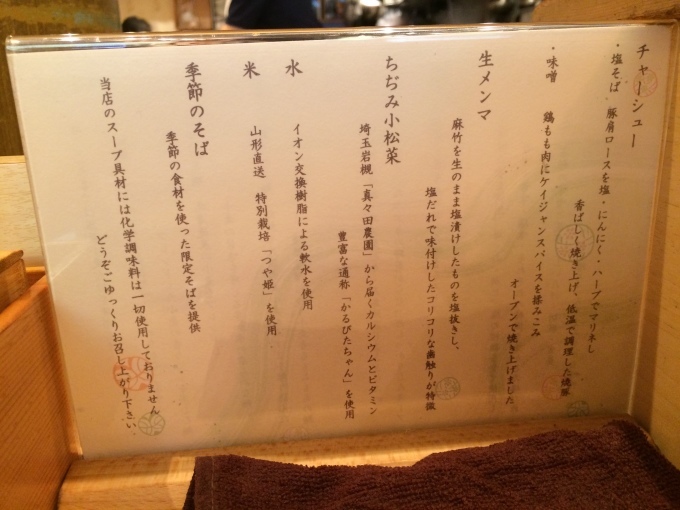 チャーシュー
・塩そば 豚肩ロースを塩・にんにく・ハーブでマリネし
香ばしく焼き上げ、低温で調理した焼豚
・味噌 鶏もも肉にケイジャンスパイスを揉みこみ
オーブンで焼き上げました
生メンマ
麻竹を生のまま塩漬けしたものを塩抜きし、
塩だれで味付けしたコリコリな歯触りが特徴
ちぢみ小松菜
埼玉岩槻「真々田農園」から届くカルシウムとビタミン
豊富な通称「かるびたちゃん」を使用
水 イオン交換樹脂による軟水を使用
米 山形直送 特別栽培「つや姫」を使用
季節のそば
季節の食材を使った限定そばを提供
当店のスープ具材には化学調味料は一切使用しておりません
どうぞごゆっくりお召し上がり下さい.